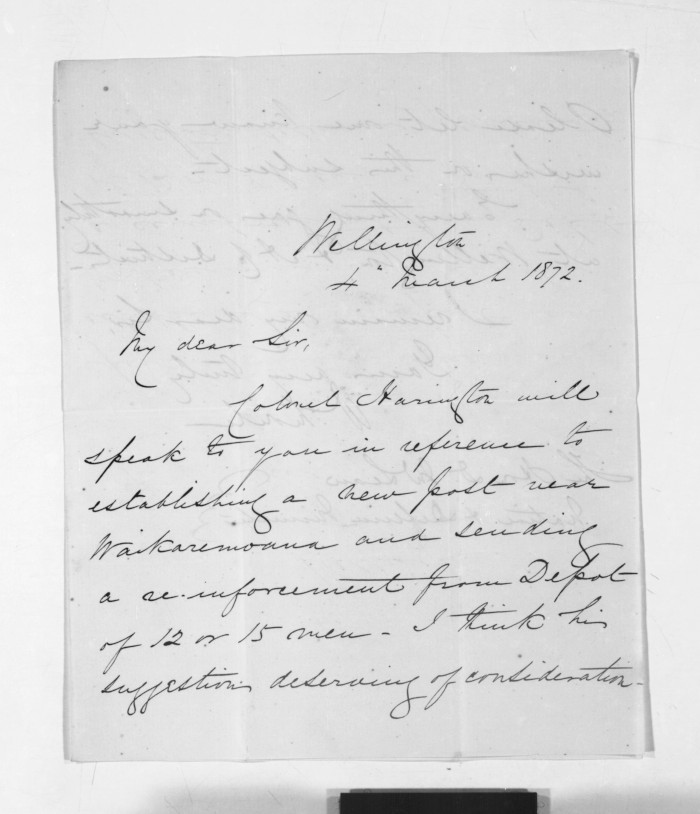 Wellington
4th March 1872.
My dear Sir,
Colonel Harington will
speak to you in reference to
establishing a new post near
Waikaremoana and sending
a re-inforcement from Depot
of 12 or 15 men - I think his
suggestions deserving of consideration -